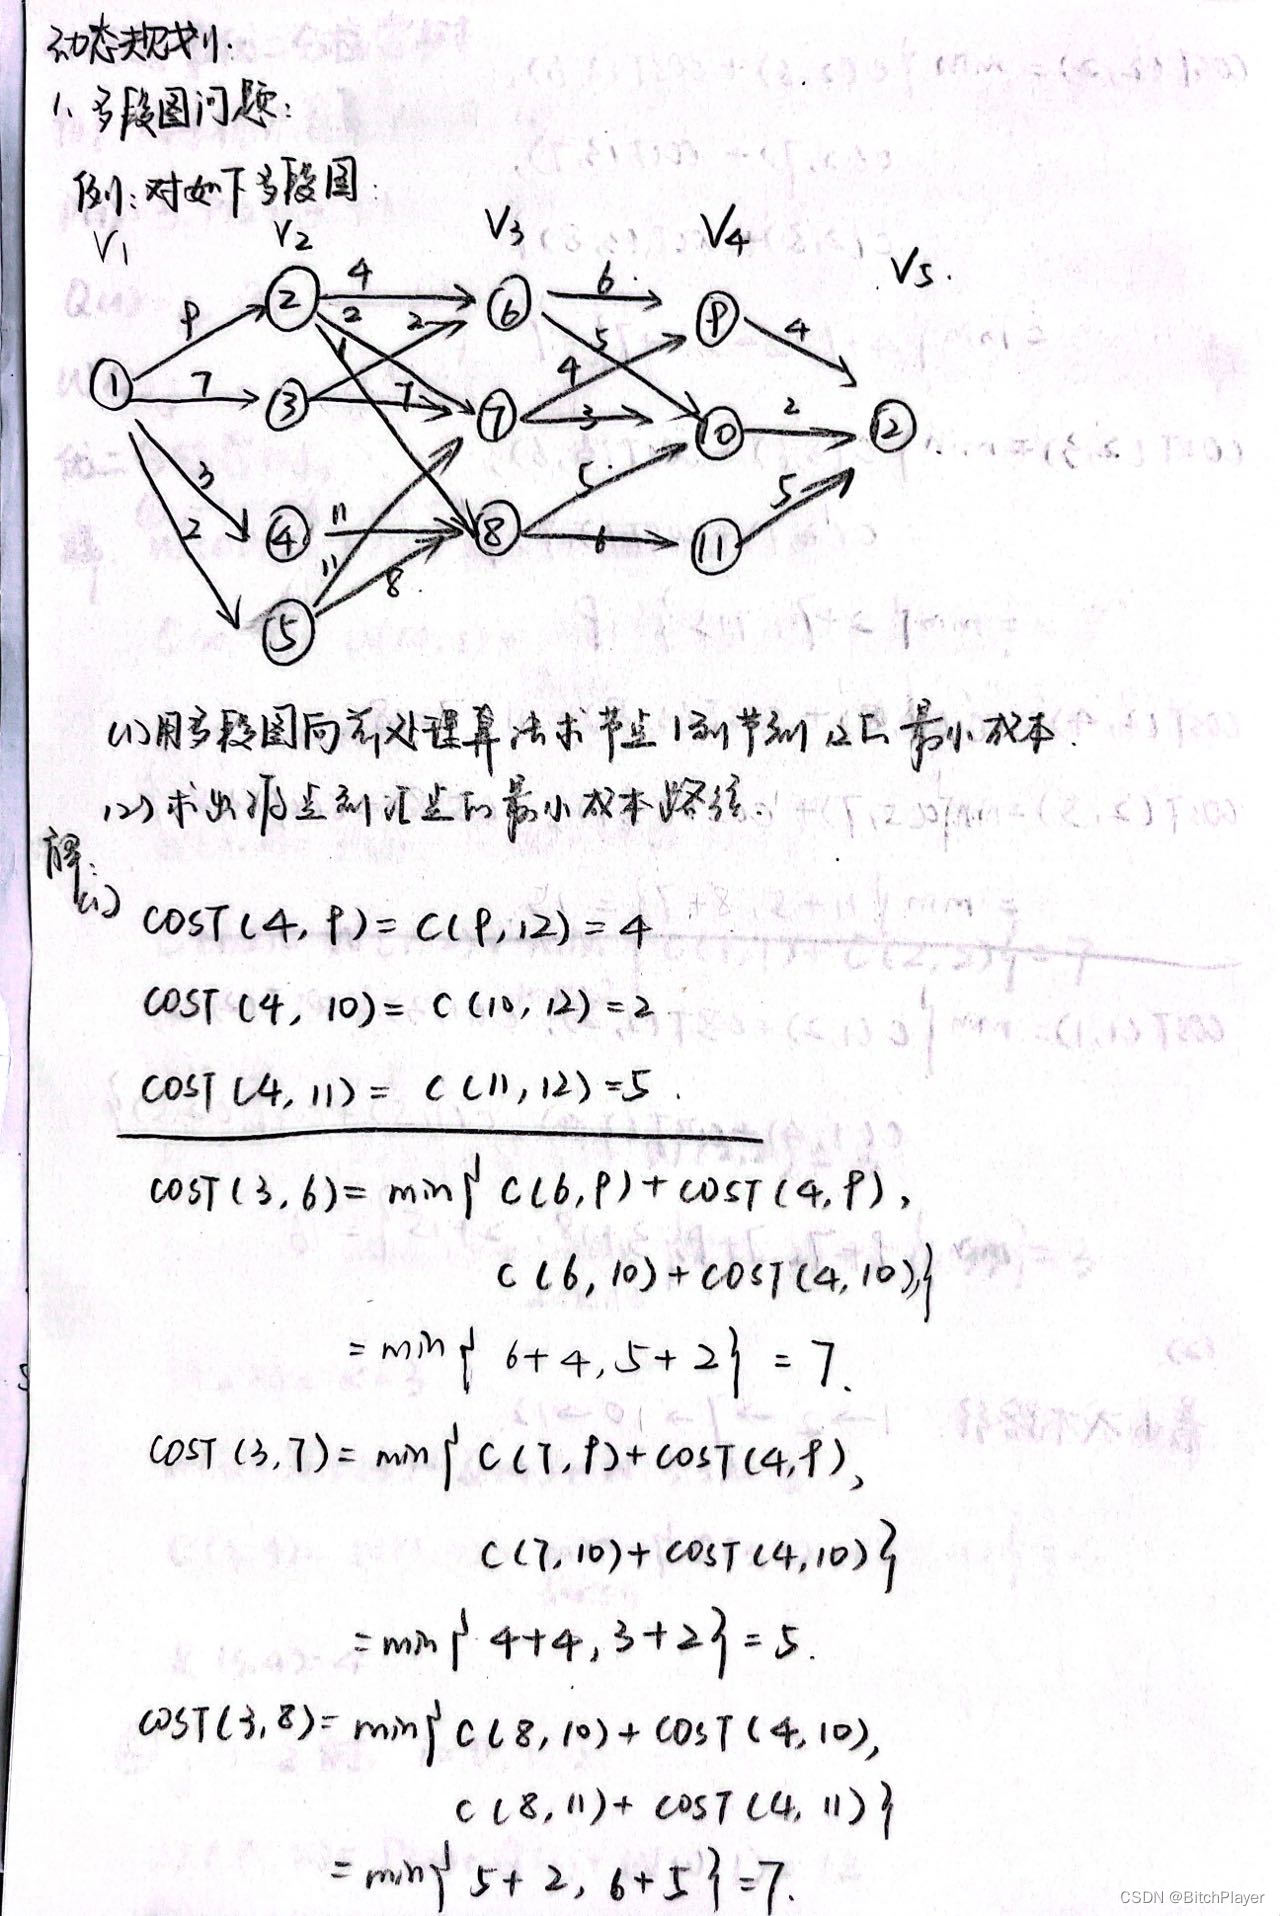 动态规划.
1、多段图问题:
例:对如下多段图:
V1 V2 V3 V4 V5.
9 7 3 2
4 2 1 2 7 11 11 8
6 5 4 3 5 6
4 2 5
1 2 3 4 5 6 7 8 9 10 11 12
(1)用多段图向前处理算法求节点1到节到12的最小成本.
(2)求出源点到汇点的最小成本路径.
解:
(1)
COST(4, 9)= C(9,12)=4
COST(4, 10)= C(10,12)=2
COST(4, 11)= C(11,12)=5.
COST(3,6)= min{ C(6,9)+COST(4,9),
C(6,10)+COST(4,10)}
=min{ 6+4,5+2} =7.
COST(3,7)= min{ C(7,9)+COST(4,9),
C(7,10)+COST(4,10)}
=min{ 4+4, 3+2}=5.
COST(3,8)= min{C(8,10)+COST(4,10),
C(8,11)+ COST(4,11)}
=min{ 5+2, 6+5}=7.
CSDN @BitchPlayer